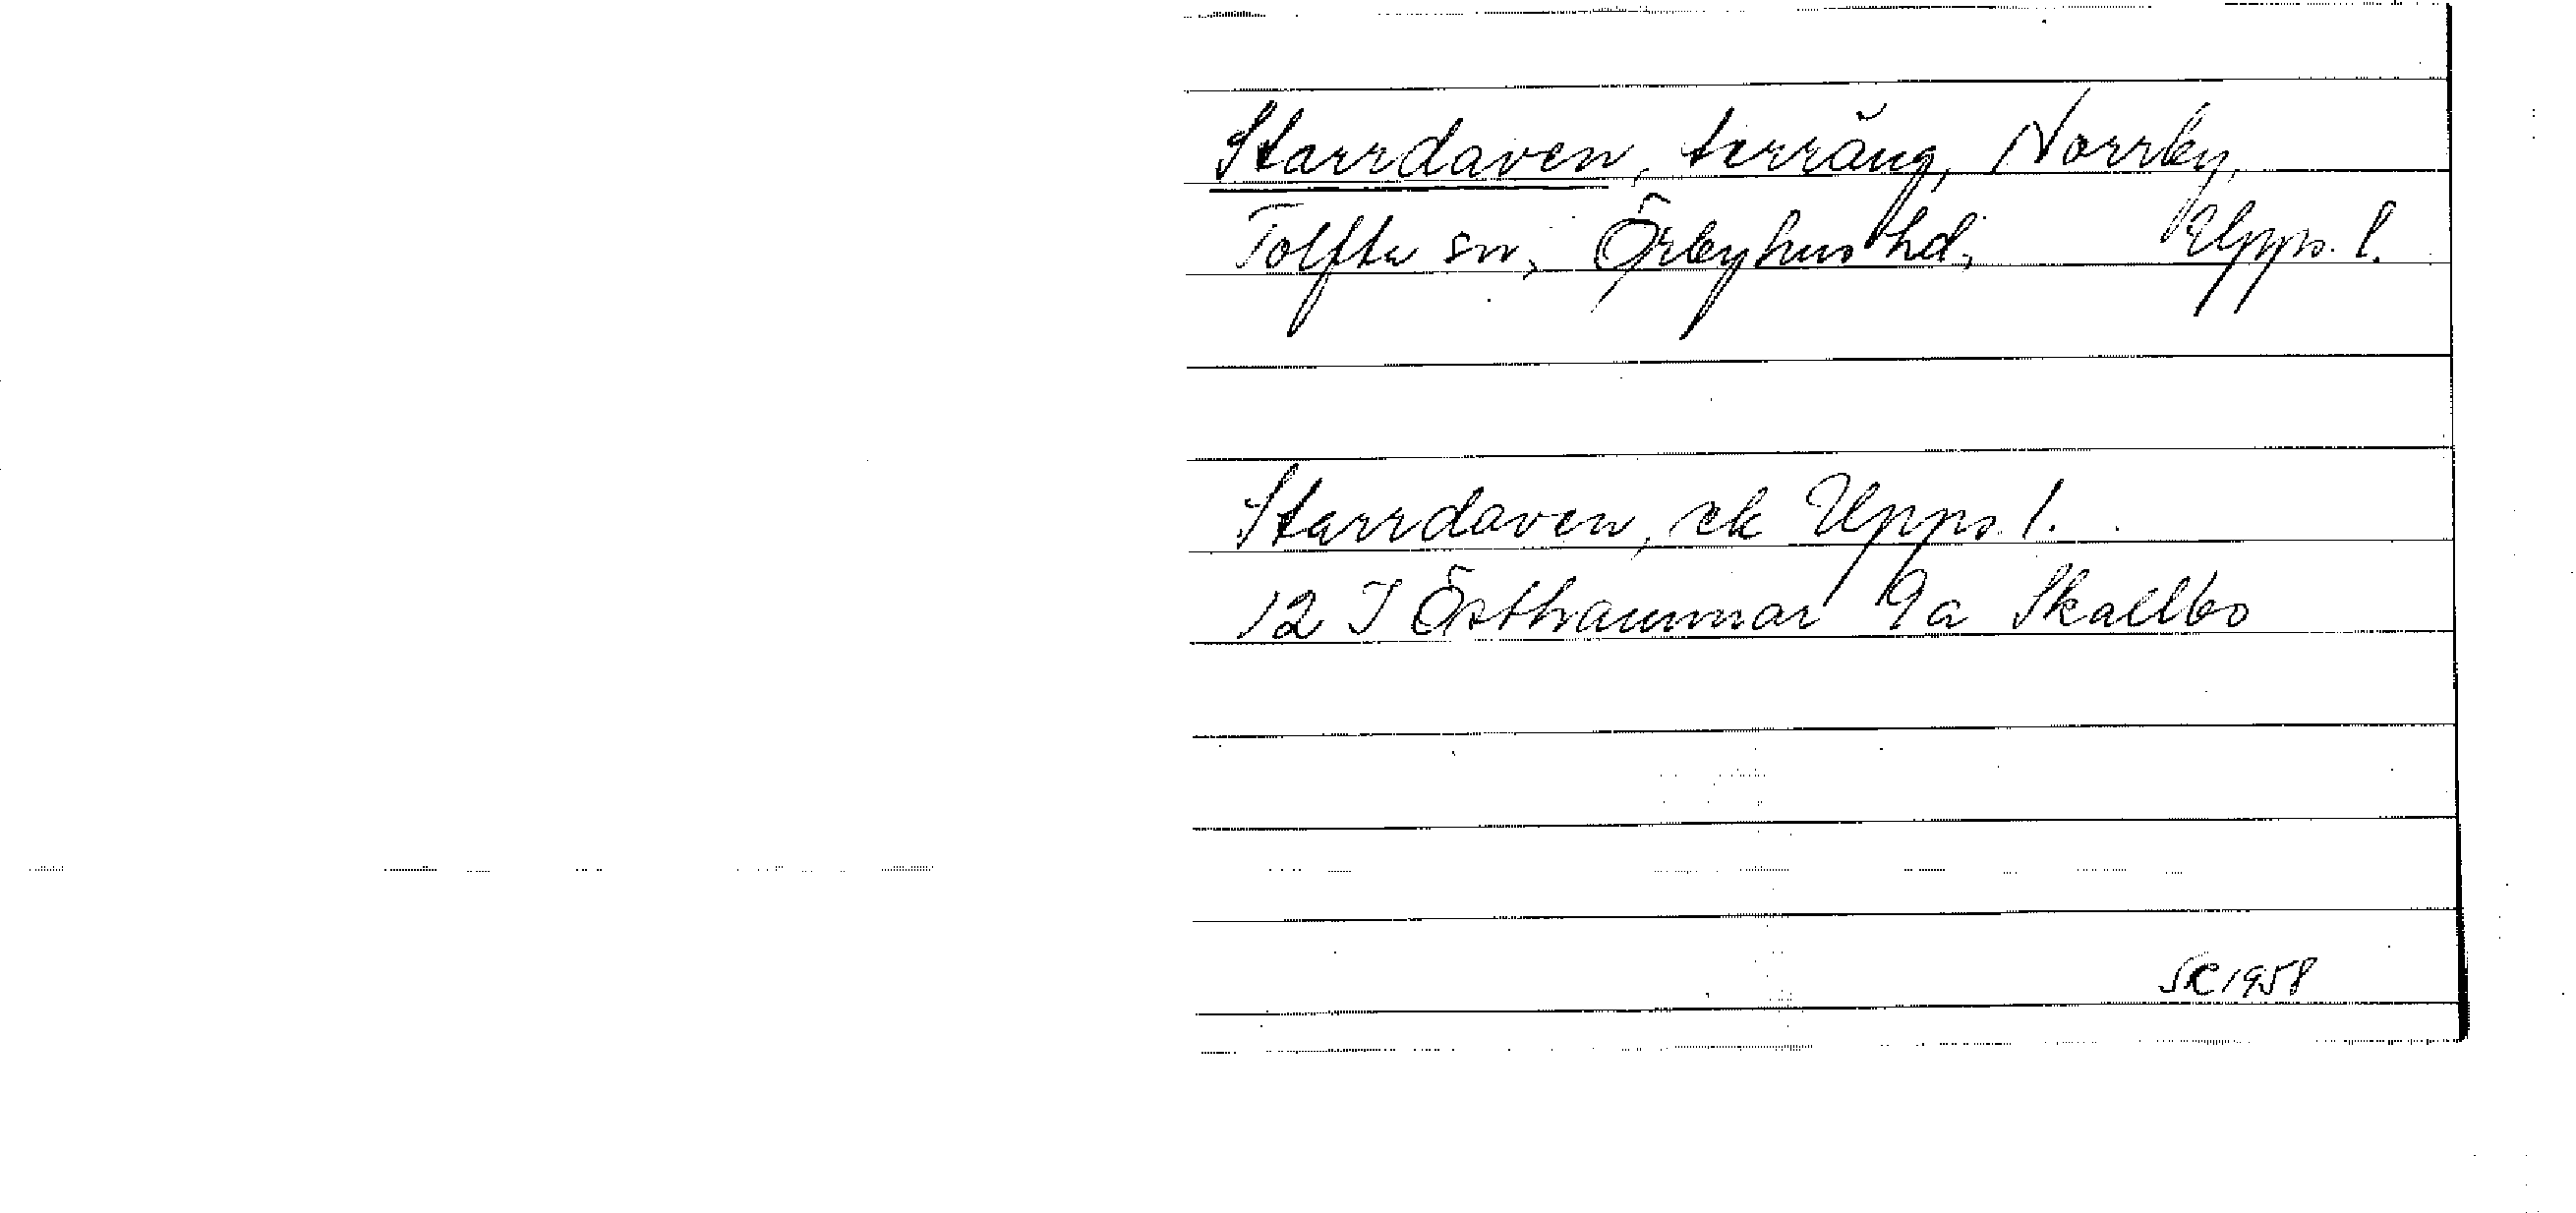 Starrdaven, terräng, Norrby,
Tolfta sn, Örbyhus hd, Upps. l.
Starrdaven, ek Upps. l.
12 I Östhammar 9a Skallbo
SC 1958